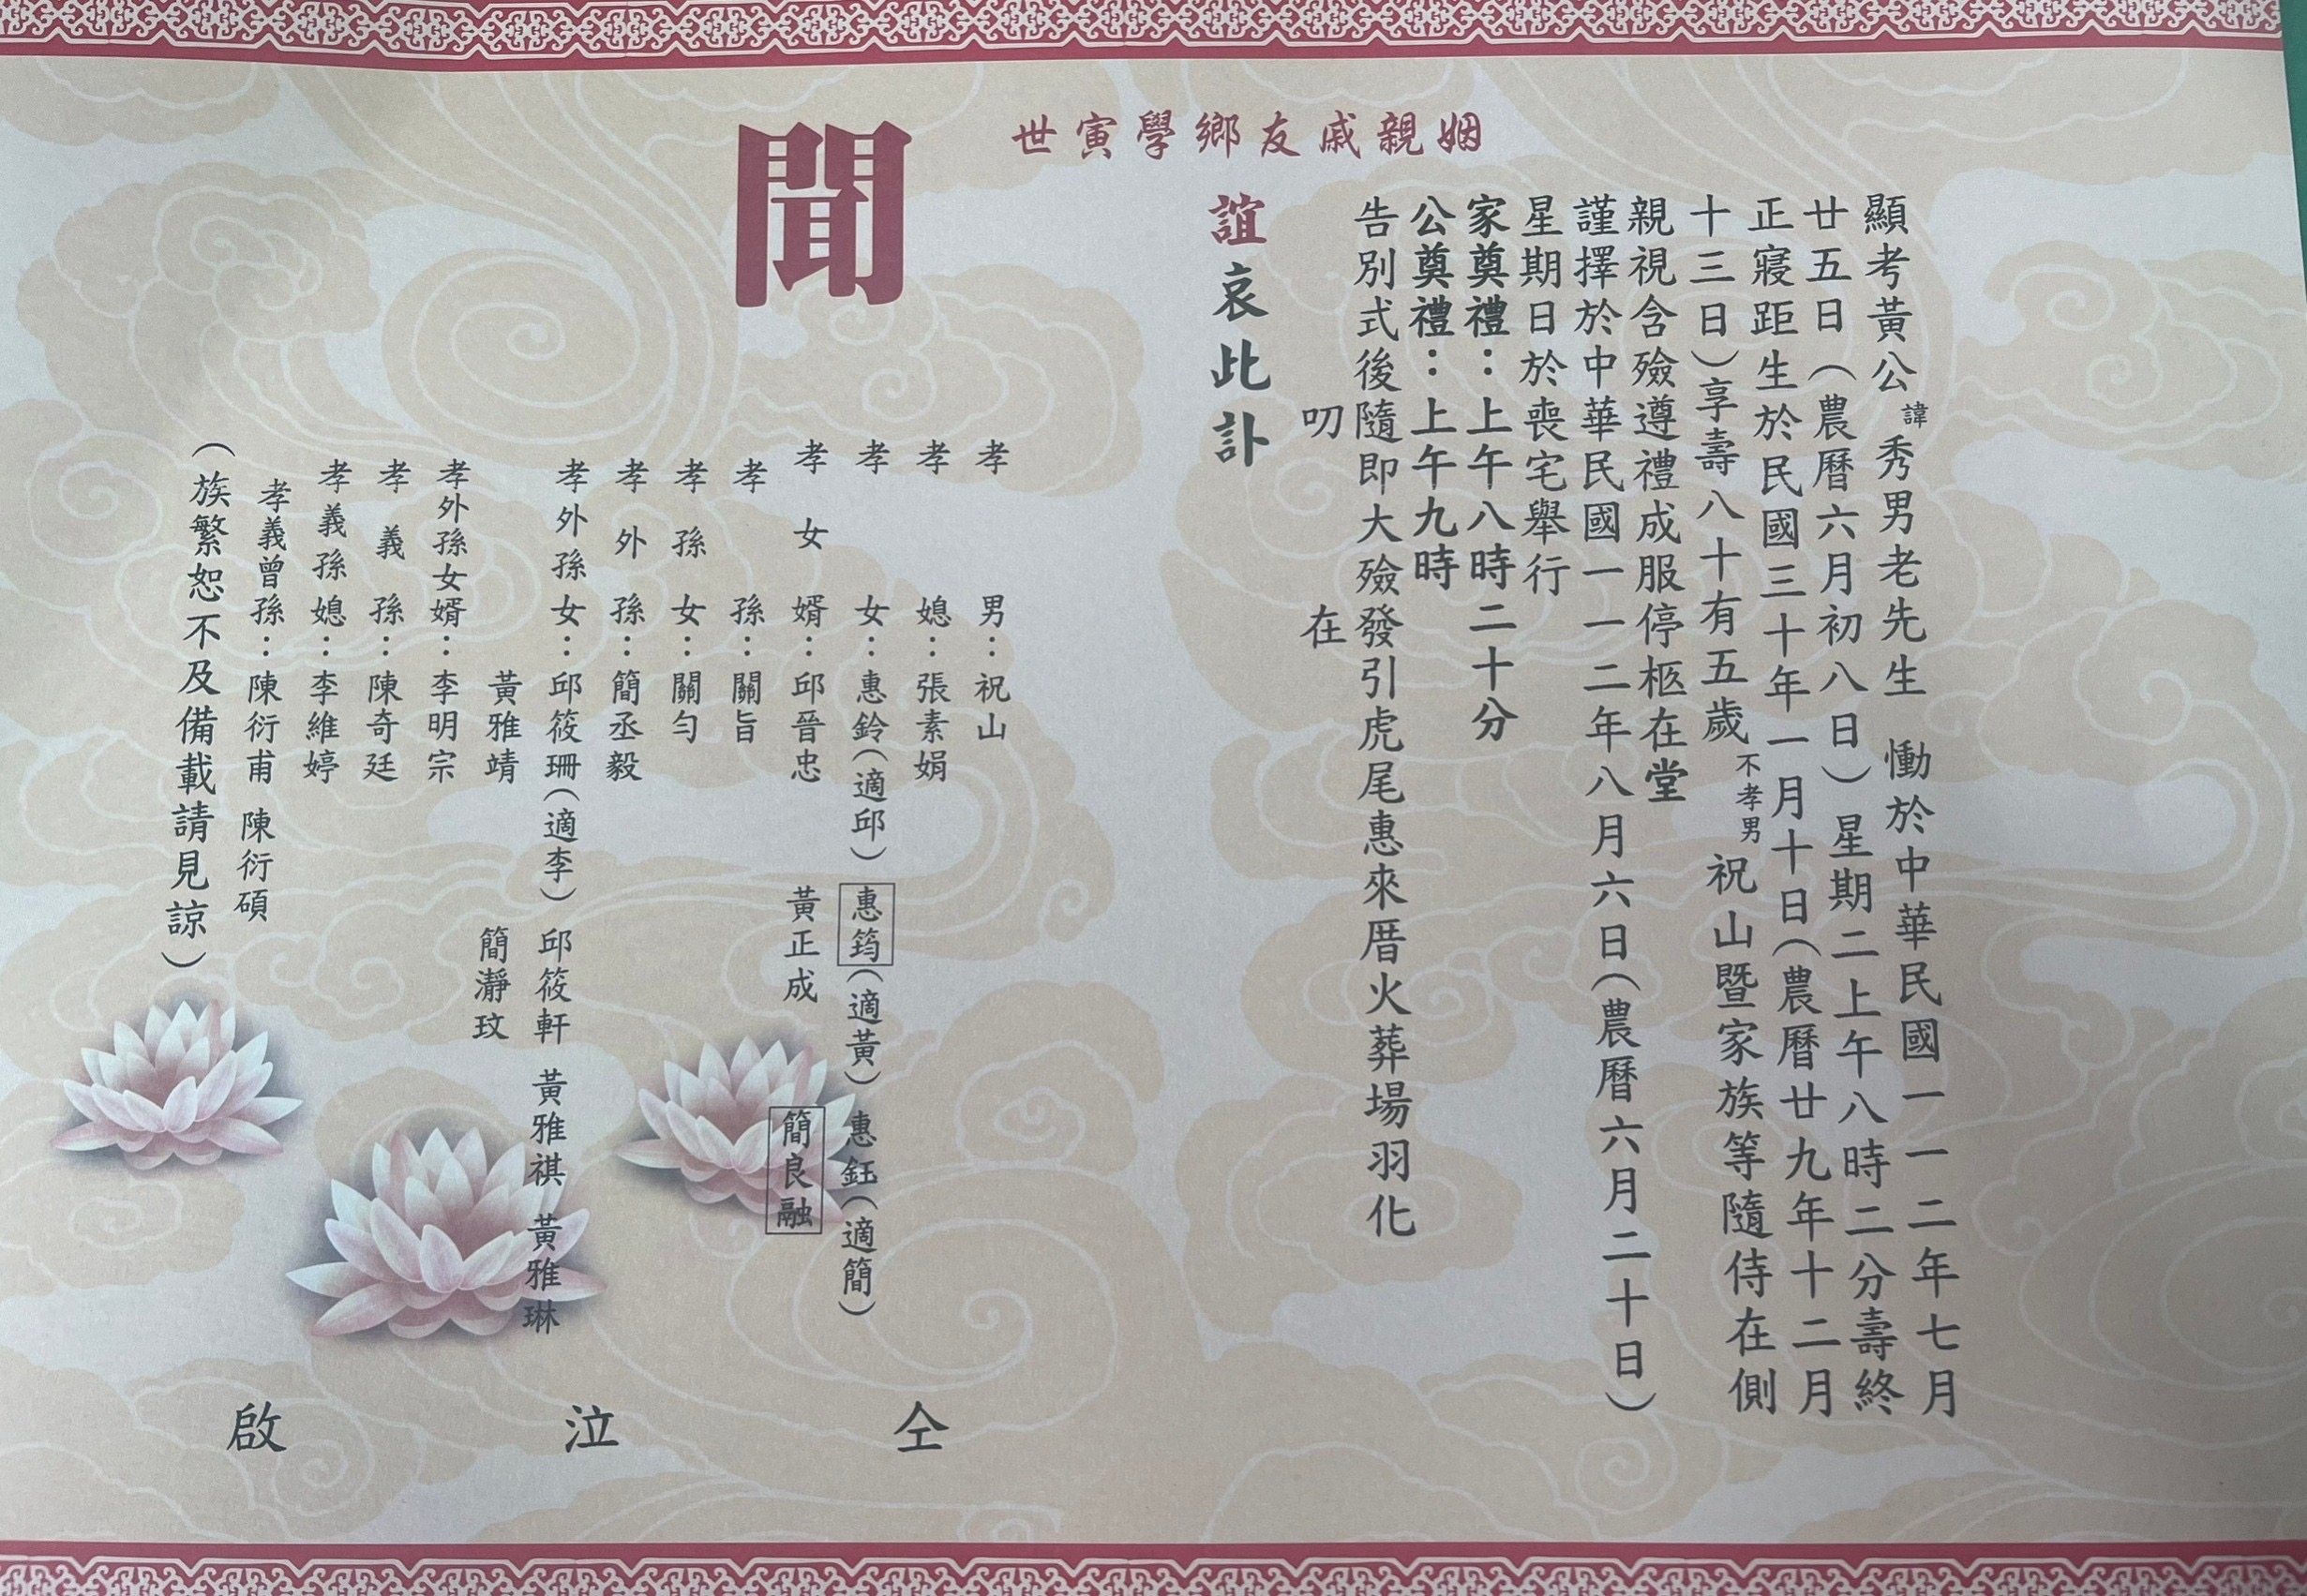 顯考黃公諱秀男老先生 慟於中華民國一一二年七月
廿五日（農曆六月初八日）星期二上午八時二分壽終
正寢距生於民國三十年一月十日（農曆廿九年十二月
十三日）享壽八十有五歲不孝男祝山暨家族等隨侍在側
親視含殮遵禮成服停柩在堂
謹擇於中華民國一一二年八月六日（農曆六月二十日）
星期日於喪宅舉行
家奠禮：上午八時二十分
公奠禮：上午九時
告別式後隨即大殮發引虎尾惠來厝火葬場羽化
叨 在
姻親戚友鄉學寅世
誼哀此訃
聞
孝男：祝山
孝媳：張素娟
孝女：惠鈴（適邱） 惠筠（適黃） 惠鈺（適簡）
孝女婿：邱晉忠 黃正成 簡良融
孝孫：關旨
孝孫女：關勻
孝外孫：簡丞毅
孝外孫女：邱筱珊（適李） 邱筱軒 黃雅祺 黃雅琳
黃雅靖 簡瀞玟
孝外孫女婿：李明宗
孝義孫：陳奇廷
孝義孫媳：李維婷
孝義曾孫：陳衍甫 陳衍碩
（族繁恕不及備載請見諒）
仝 泣 啟